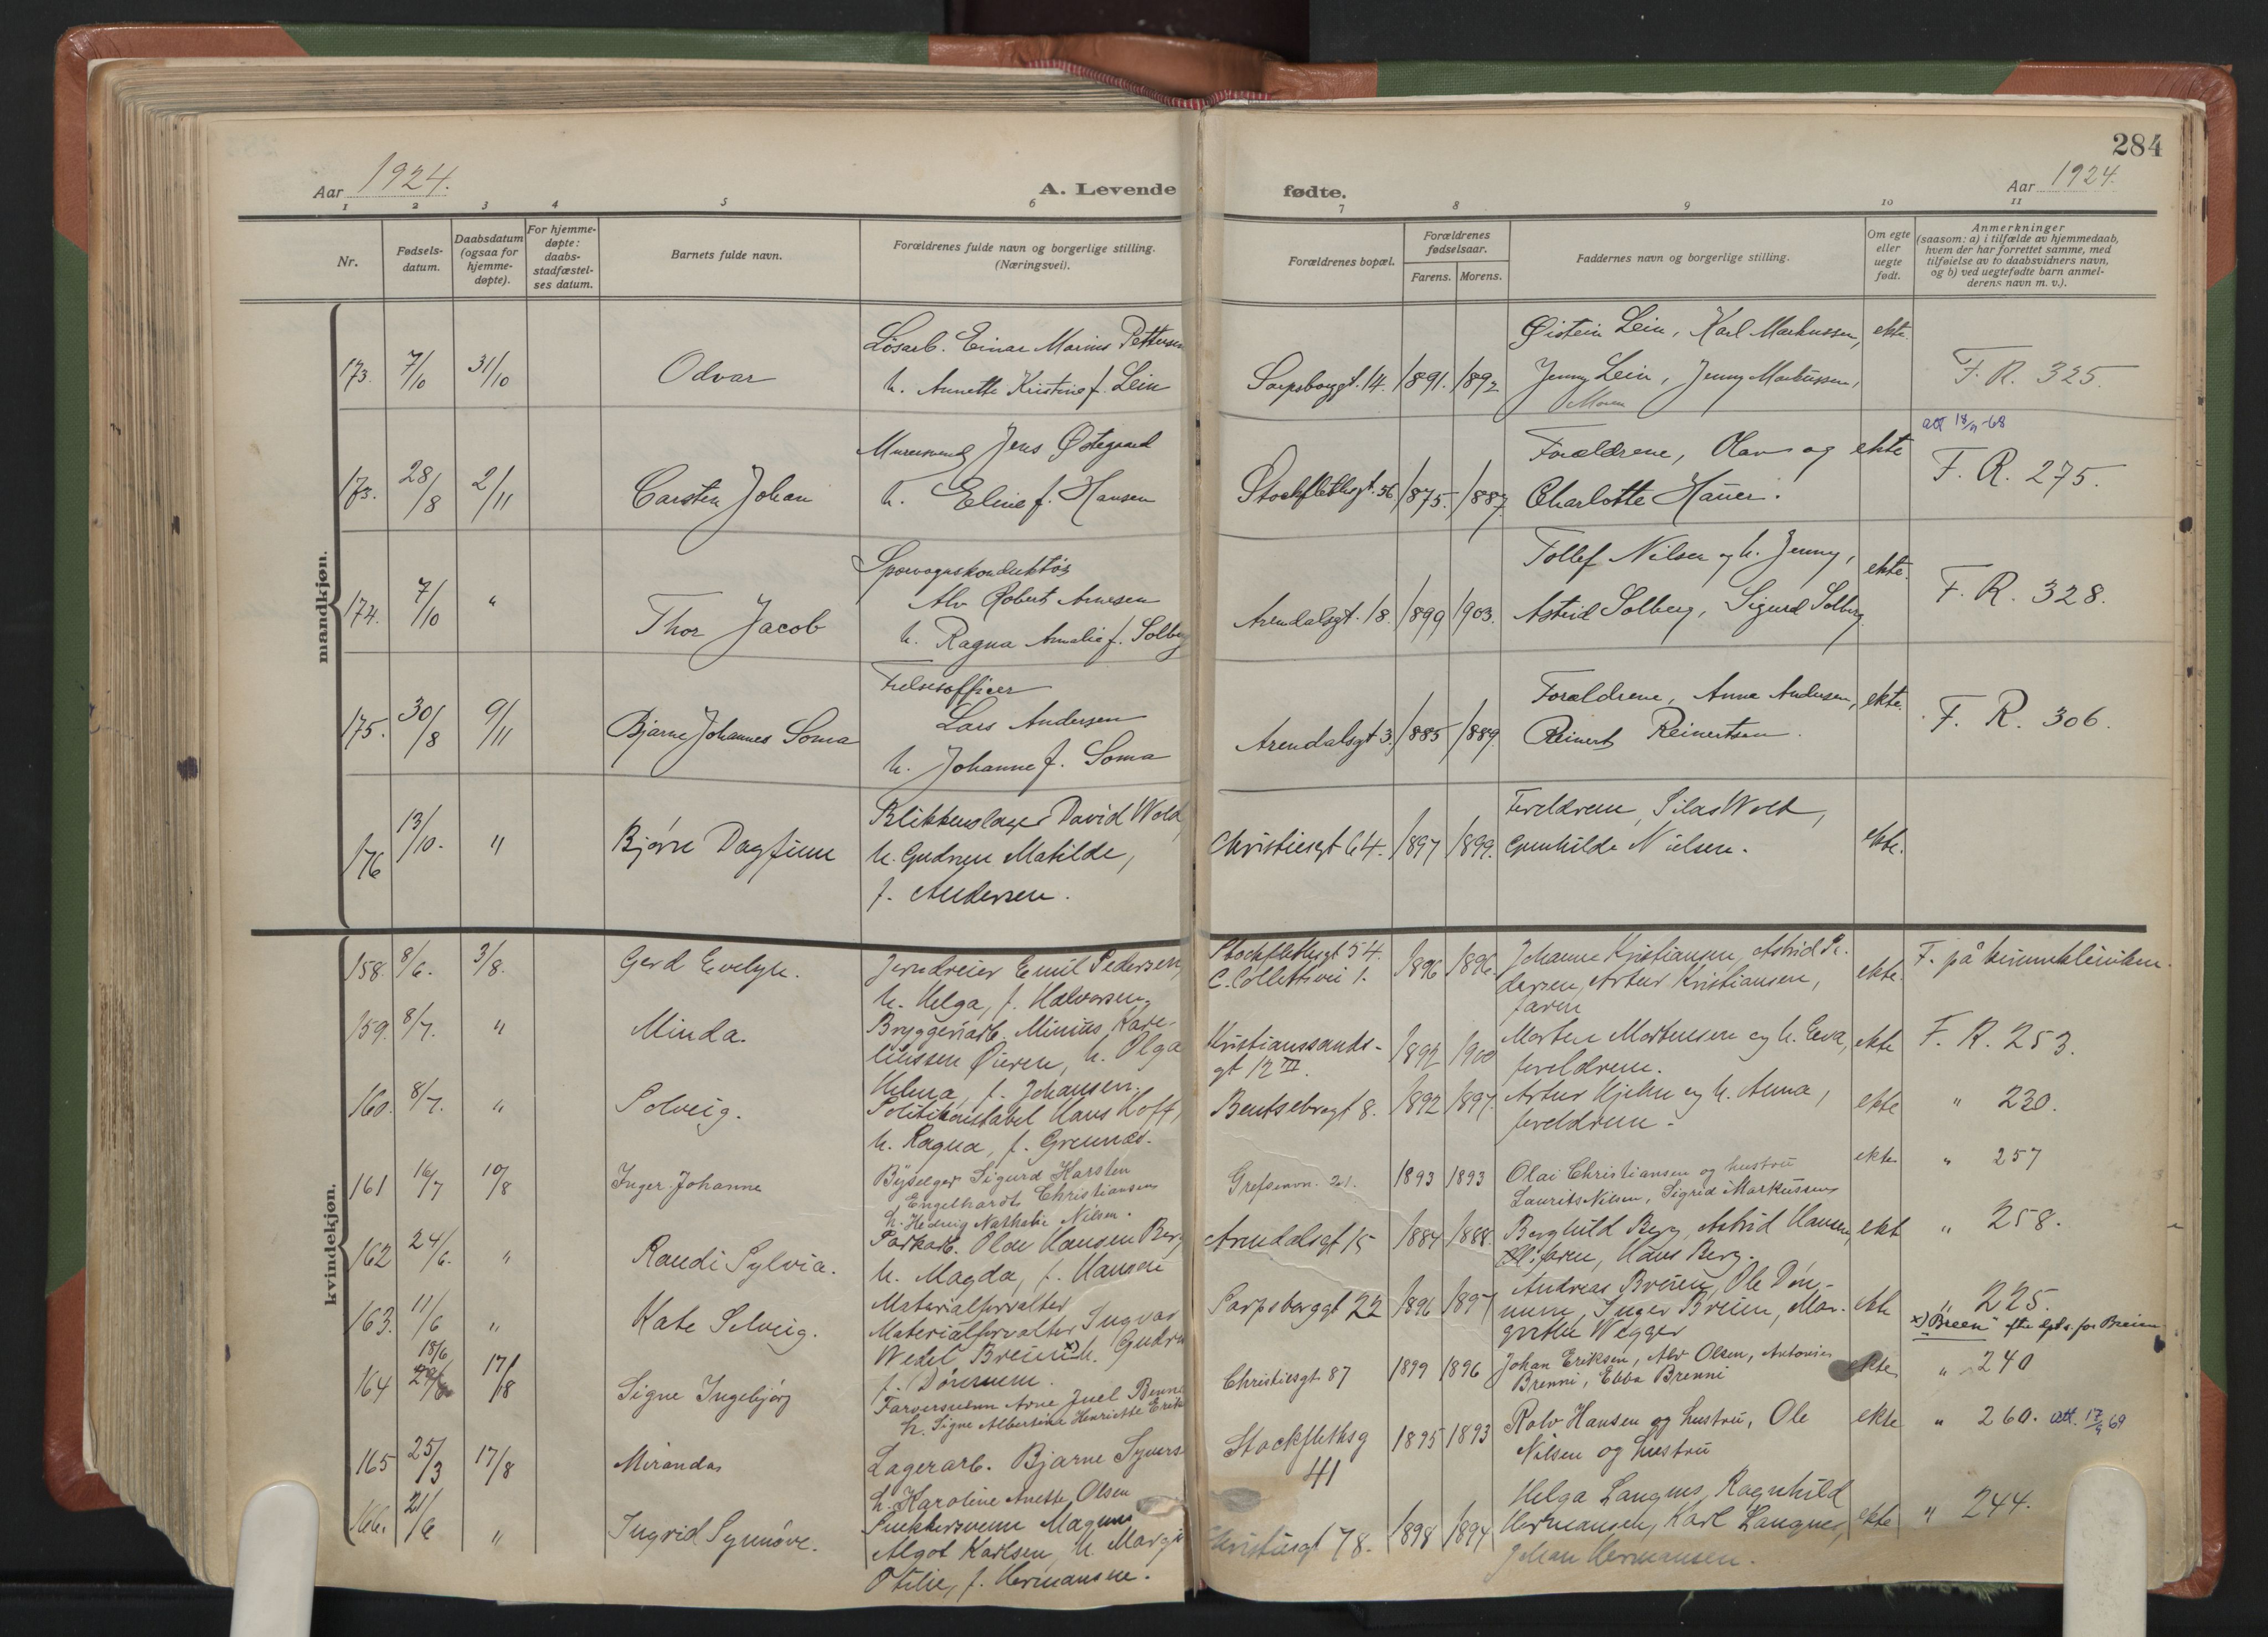 284
Aar 1924.
A. Levende fødte.
Aar 1924.
1 2 3 4 5 6 7 8 9 10 11
Nr.
Fødsels-
datum.
Daabsdatum
(ogsaa for
hjemme-
døpte).
For hjemme-
døpte:
daabs-
stadfæstel-
ses datum.
Barnets fulde navn.
Forældrenes fulde navn og borgerlige stilling.
(Næringsvei).
Forældrenes bopæl.
Forældrenes
fødselsaar.
Farens. Morens.
Faddernes navn og borgerlige stilling.
Om egte
eller
uegte
født.
Anmerkninger
(saasom: a) i tilfælde av hjemmedaab,
hvem der har forrettet samme, med
tilføielse av to daabsvidners navn,
og b) ved uegtefødte barn anmel-
derens navn m. v.).
mandkjøn.
Løsarb. Einar Marius Pettersen
Øistein Lein, Karl Markussen, ekte.
173. 7/10 31/10 Odvar h. Annette Kristine f. Lein Sarpsborggt. 14. 1891. 1892 Jenny Lein, Jenny Markussen, F. R. 325.
Moren
Murersvend Jens Østegaard
Forældrene, Olav og ekte
att 18/9-68
173. 28/8 2/11 Carsten Johan h. Eline f. Hansen Stockflethsgt. 56 1875. 1887. Charlotte Hauer. F. R. 275.
Sporvognskonduktør
Tollef Nilsen og h. Jenny, ekte.
174. 7/10 " Thor Jacob Alv Robert Arnesen Arendalsgt. 18. 1899 1903. Astrid Solberg, Sigurd Solberg. F. R. 328.
h. Ragna Amalie f. Solberg
Frelsesofficer
Forældrene, Anna Andersen, ekte.
175. 30/8 9/11 Bjarne Johannes Soma Lars Andersen Arendalsgt 3. 1885 1889. Reinert Reinertsen. F. R. 306.
h. Johanne f. Soma
Blikkenslager David Wold
Foreldrene, Silas Wold,
176 13/10. " Bjørn Dagfinn h. Gudrun Matilde, Christiesgt 64. 1897 1899. Gunhilde Nielsen. ekte.
f. Andersen.
kvindekjøn.
158. 8/6. 3/8. Gerd Evelyn. Jerndreier Emil Pedersen, Stockflethsgt 54. 1896 1896. Johanne Kristiansen, Astrid Pe- ekte. F. på kvinneklinikken.
h. Helga, f. Halvorsen. C. Collettsvei 1. dersen, Artur Kristiansen,
faren
159. 8/7. " Minda. Bryggeriarb. Minius Kare- Kristianssands- 1892 1900 Morten Mortensen og h. Eva, ekte F. R. 253.
liussen Øieren, h. Olga gt 12 III. foreldrene.
Helma, f. Johansen.
160. 8/7. " Solveig. Politikonstabel Hans Hoff, Bentsebrogt 8. 1892 1897. Artur Kjelsen og h. Anna, ekte " 230.
h. Ragna, f. foreldrene.
161 16/7 10/8 Inger Johanne Byselger Sigurd Karsten Grefsenvn. 21. 1893 1893 Olai Christiansen og hustru ekte " 257
Engelhardt Christiansen Laurits Nilsen, Sigrid Markussen
h. Hedvig Nathalie Nilsen.
162 24/6. " Randi Sylvia. Parkarb. Olav Hansen Berg Arendalsgt 15 1884 1888. Borghild Berg, Astrid Hansen, ekt " 258.
h. Magda, f. Hansen faren, Hans Berg.
163. 11/6 " Kate Solveig. Materialforvalter Sarpsborggt 22 1896 1897 Andreas Breien, Ole Døn- ekte " 225.
Materialforvalter Ingvar num, Inger Breien, Mar- x) "Breen" efter for Breien
Wedel Breien x) h. Gudrun grethe Wegger
f. Dønnum.
164 18/6 29/6 17/8 Signe Ingebjørg Farversvenn Arne Juel Brenni Christiesgt 87 1899 1896 Johan Eriksen, Alv Olsen, Antonie ekte " 240
h. Signe Albertine Henriette Erik Brenni, Ebba Brenni
165 25/3 17/8 Miranda Lagerarb. Bjarne Syvers Stockflethsg 1895 1893 Rolv Hansen og hustru, Ole ekte " 260. att. 17/9 69
h. Karoline Anette Olsen 41 Nilsen og hustru
166. 21/6 " Ingrid Synnøve. Snekkersvenn Magnus Christiesgt 78. 1898 1894 Helga Langnes, Ragnhild ekte " 244.
Algot Karlsen, h. Margit Hermansen, Karl Langnes,
Otilie, f. Hermansen. Johan Hermansen.